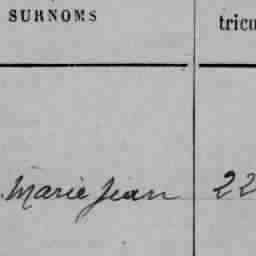 SURNOMS
tricu
Marie Jean 22